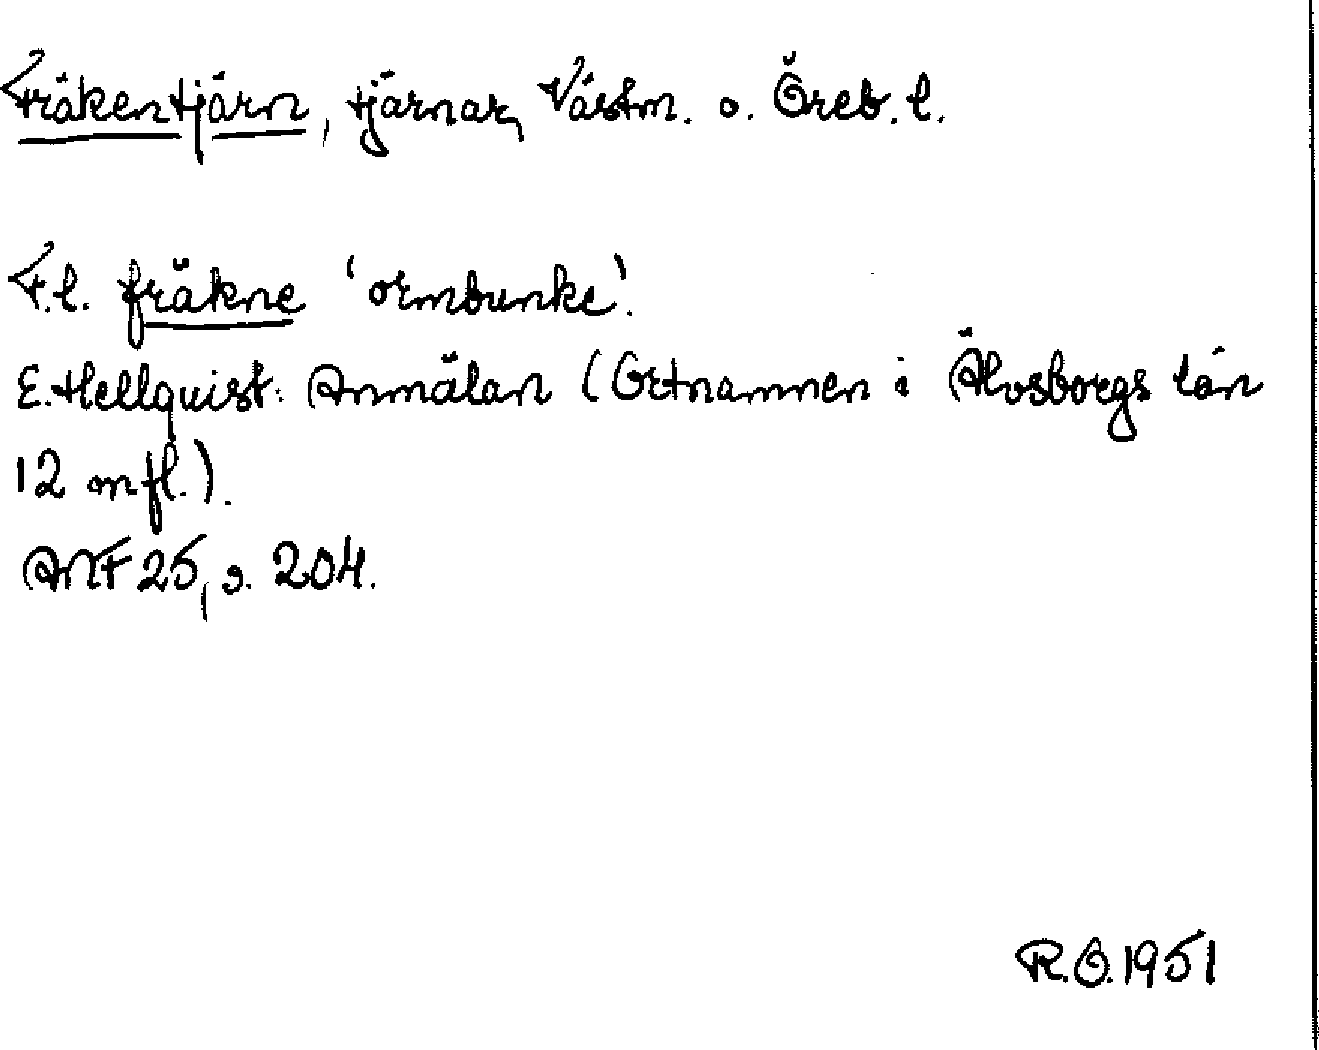 Fräkentjärn, tjärnar, Västm. o. Öreb. l.
F.l. fräkne 'ormbunke'.
E. Hellquist: Anmälan (Ortnamnen i Älvsborgs län
12 mfl.).
ANF 25, s. 204.
R.O. 1951